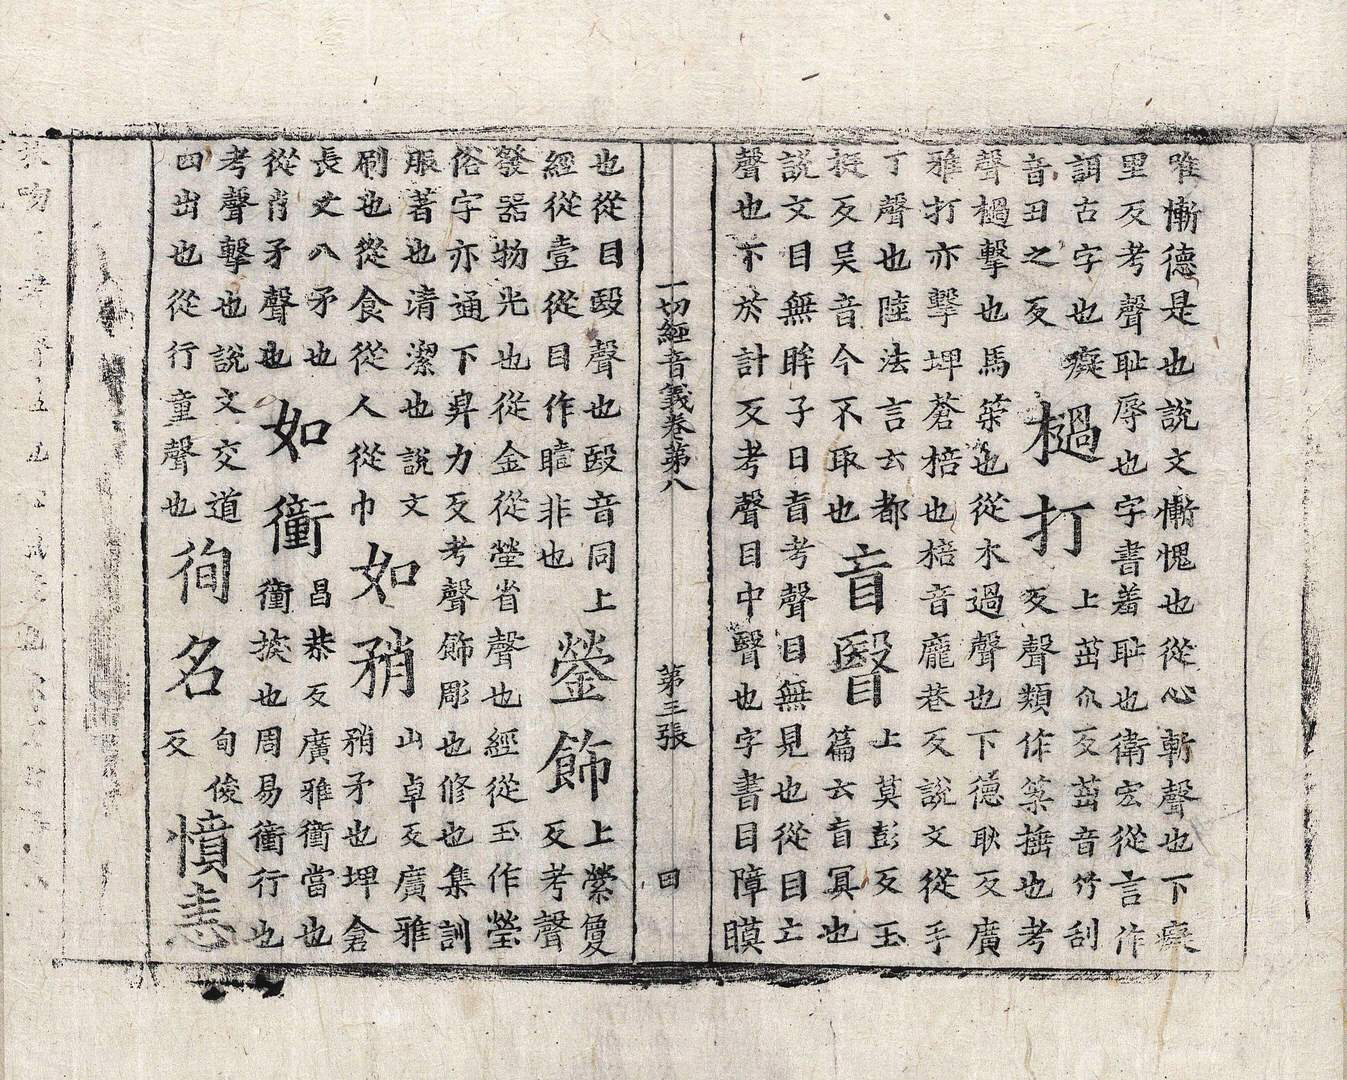 唯慚德是也說文慚愧也從心斬聲也下癡
里反考聲耻辱也字書羞耻也衛宏從言作
古字也癡
音丑之反
檛打
上茁爪反茁音竹刮
反聲類作築捶也考
聲檛擊也馬策也從木過聲也下德耿反廣
雅打亦擊埤蒼棓也棓音龐巷反說文從手
丁聲也陸法言云都
挺反吳音今不取也
盲瞖
上莫彭反玉
篇云盲冥也
說文目無眸子曰盲考聲目無見也從目亡
聲也下於計反考聲目中瞖也字書目障瞙
一切經音義卷第八 第三張 四
也從目殹聲也殹音同上
經從壹從目作曀非也
鎣飾
上縈敻
反考聲
發器物光也從金從瑩省聲也經從玉作瑩
俗字亦通下昇力反考聲飾彫也修也集訓
服著也清潔也說文
刷也從食從人從巾
如矟
山卓反廣雅
矟矛也埤倉
長丈八矛也
從肖矛聲也
如衝
昌恭反廣雅衝當也
衝揬也周易衝行也
考聲擊也說文交道
四出也從行童聲也
徇名
旬俊
反
憤恚